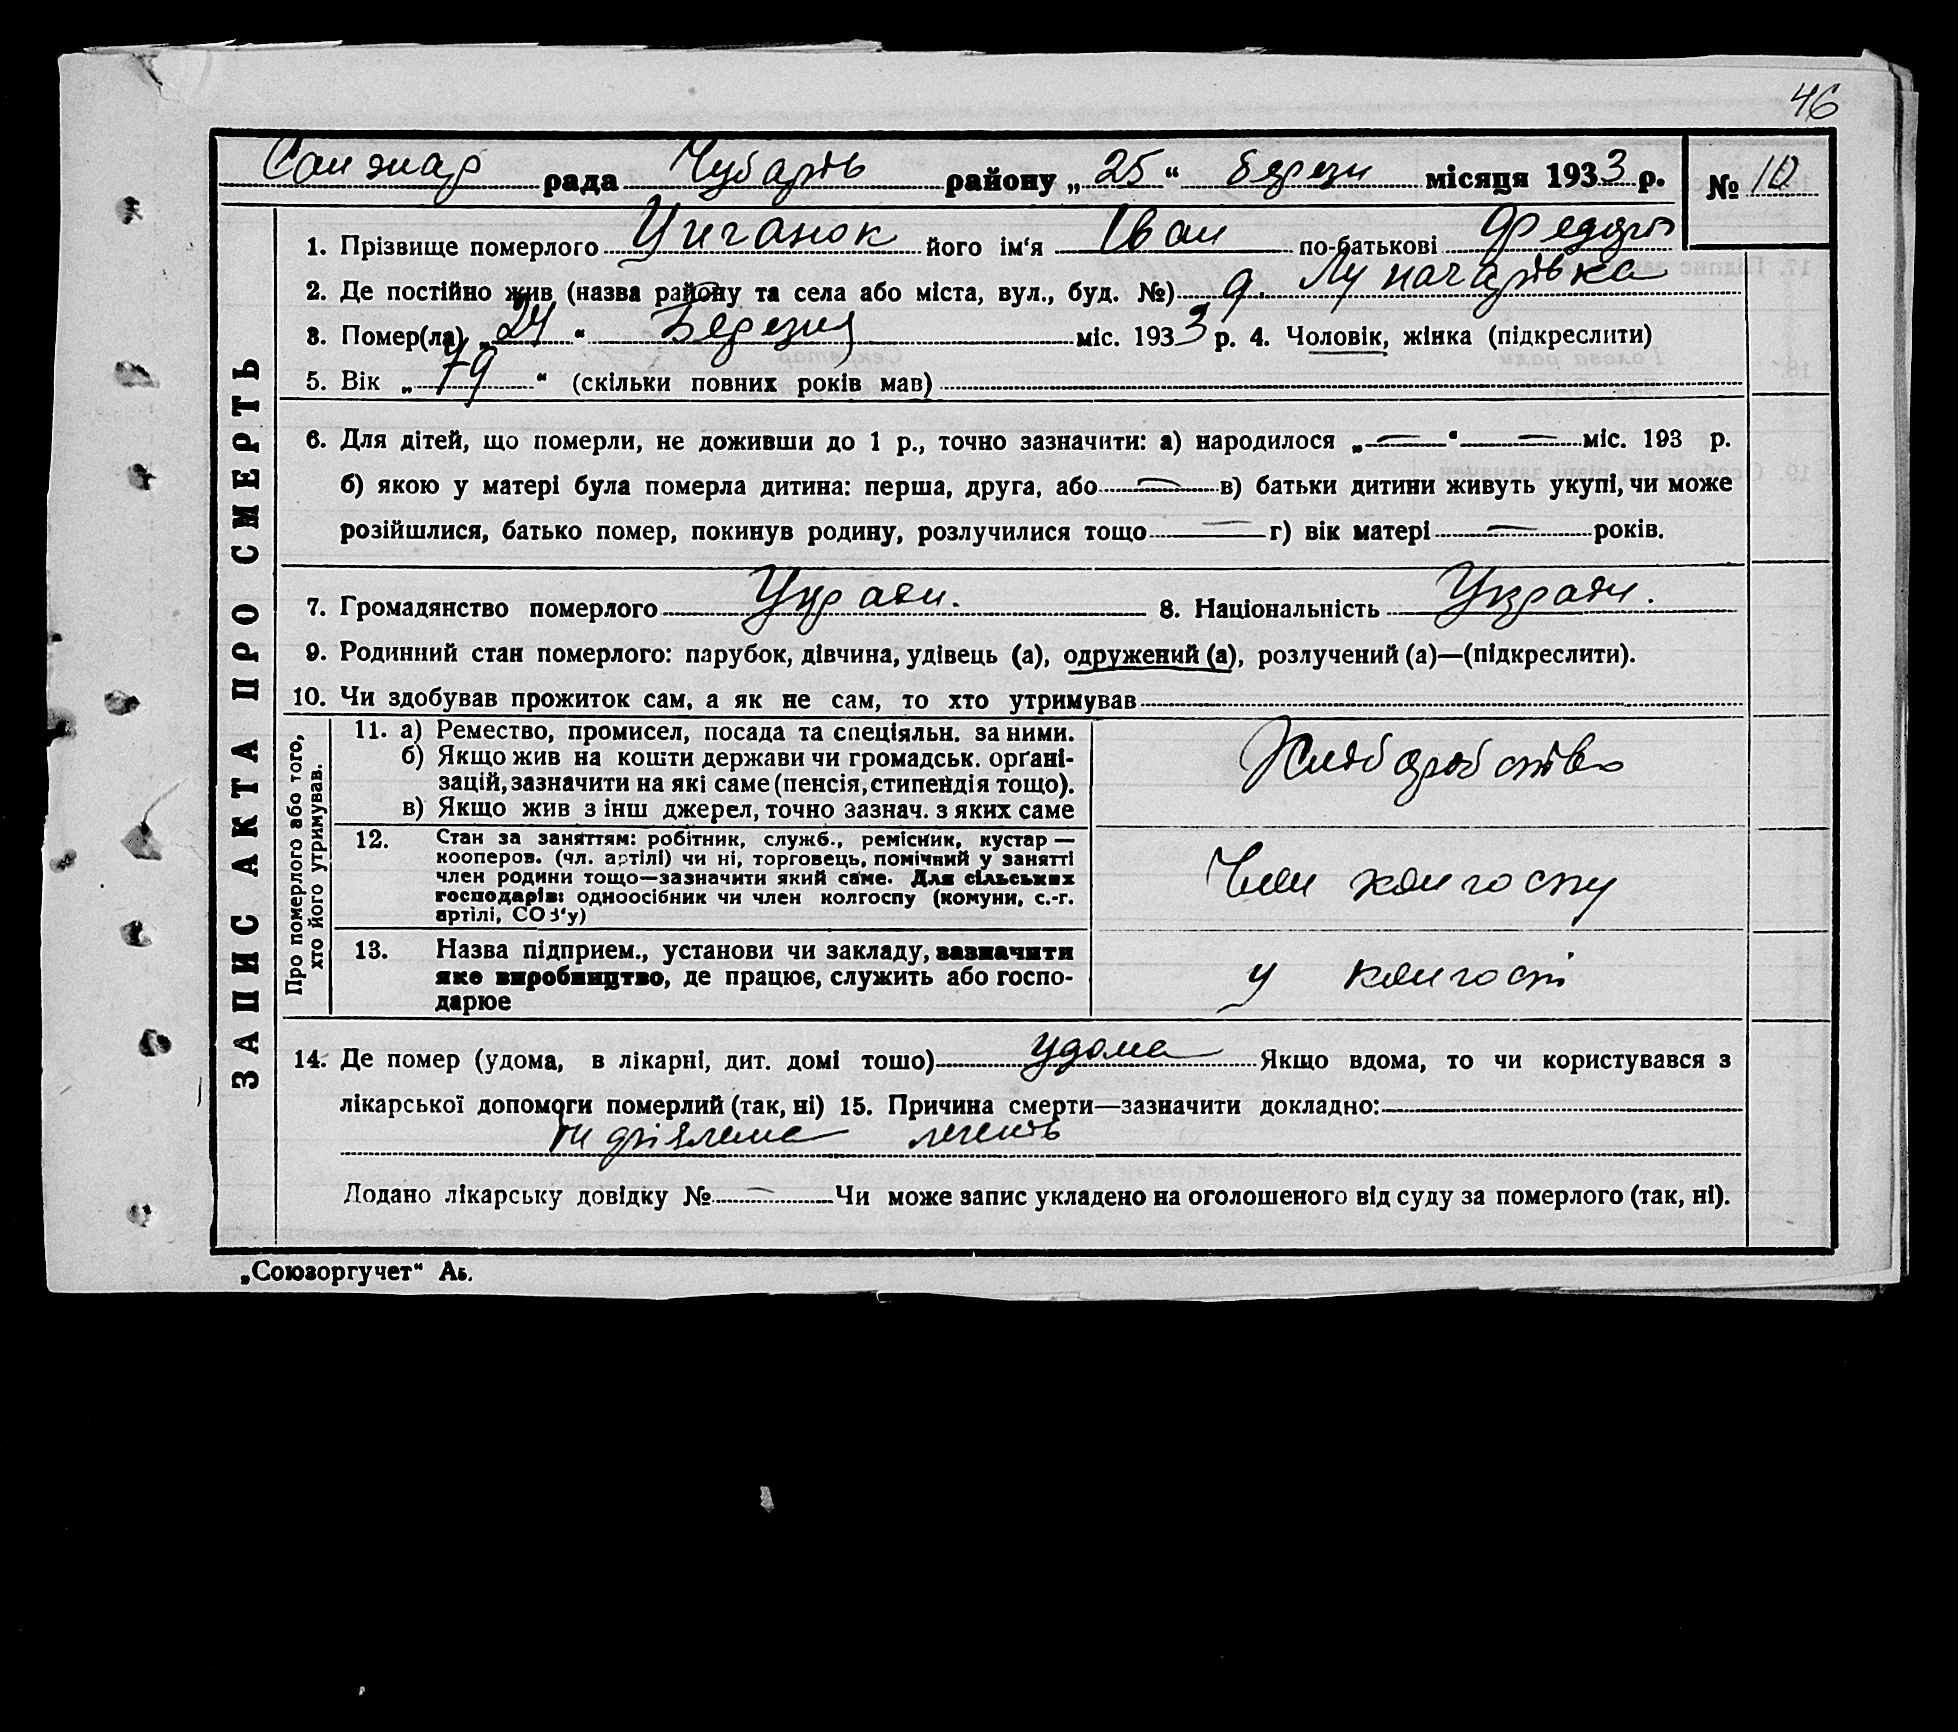 46
Санжар рада Чубарів району „25“ березн місяця 1933 р. № 10
ЗАПИС АКТА ПРО СМЕРТЬ
1. Прізвище померлого Циганок його ім‘я Іван по-батькові Федоро
2. Де постійно жив (назва району та села або міста, вул., буд. №) Луначарівка
3. Помер(ла) „24“ Березня міс. 1933 р. 4. Чоловік, жінка (підкреслити)
5. Вік „79“ (скільки повних років мав)
6. Для дітей, що померли, не доживши до 1 р., точно зазначити: а) народилося „—“ — міс. 193 р.
б) якою у матері була померла дитина: перша, друга, або — в) батьки дитини живуть укупі, чи може
розійшлися, батько помер, покинув родину, розлучилися тощо — г) вік матері — років.
7. Громадянство померлого Украін. 8. Національність Украін.
9. Родинний стан померлого: парубок, дівчина, удівець (а), одружений (а), розлучений (а)—(підкреслити).
10. Чи здобував прожиток сам, а як не сам, то хто утримував
Про померлого або того,
хто його утримував.
11. а) Ремество, промисел, посада та спеціяльн. за ними.
б) Якщо жив на кошти держави чи громадськ. орґані-
зацій, зазначити на які саме (пенсія, стипендія тощо).
в) Якщо жив з інш джерел, точно зазнач. з яких саме
Хліборобство
12. Стан за заняттям: робітник, служб., ремісник, кустар —
кооперов. (чл. артілі) чи ні, торговець, помічний у занятті
член родини тощо—зазначити який саме. Для сільських
господарів: одноосібник чи член колгоспу (комуни, с.-г.
артілі, СОЗ‘у)
Член колгоспу
13. Назва підприєм., установи чи закладу, зазначити
яке виробництво, де працює, служить або госпо-
дарює
у колгосп
14. Де помер (удома, в лікарні, дит. домі тошо) удома Якщо вдома, то чи користувався з
лікарської допомоги померлий (так, ні) 15. Причина смерти—зазначити докладно:
легенів
Додано лікарську довідку № — Чи може запис укладено на оголошеного від суду за померлого (так, ні).
„Союзоргучет“ Аь.